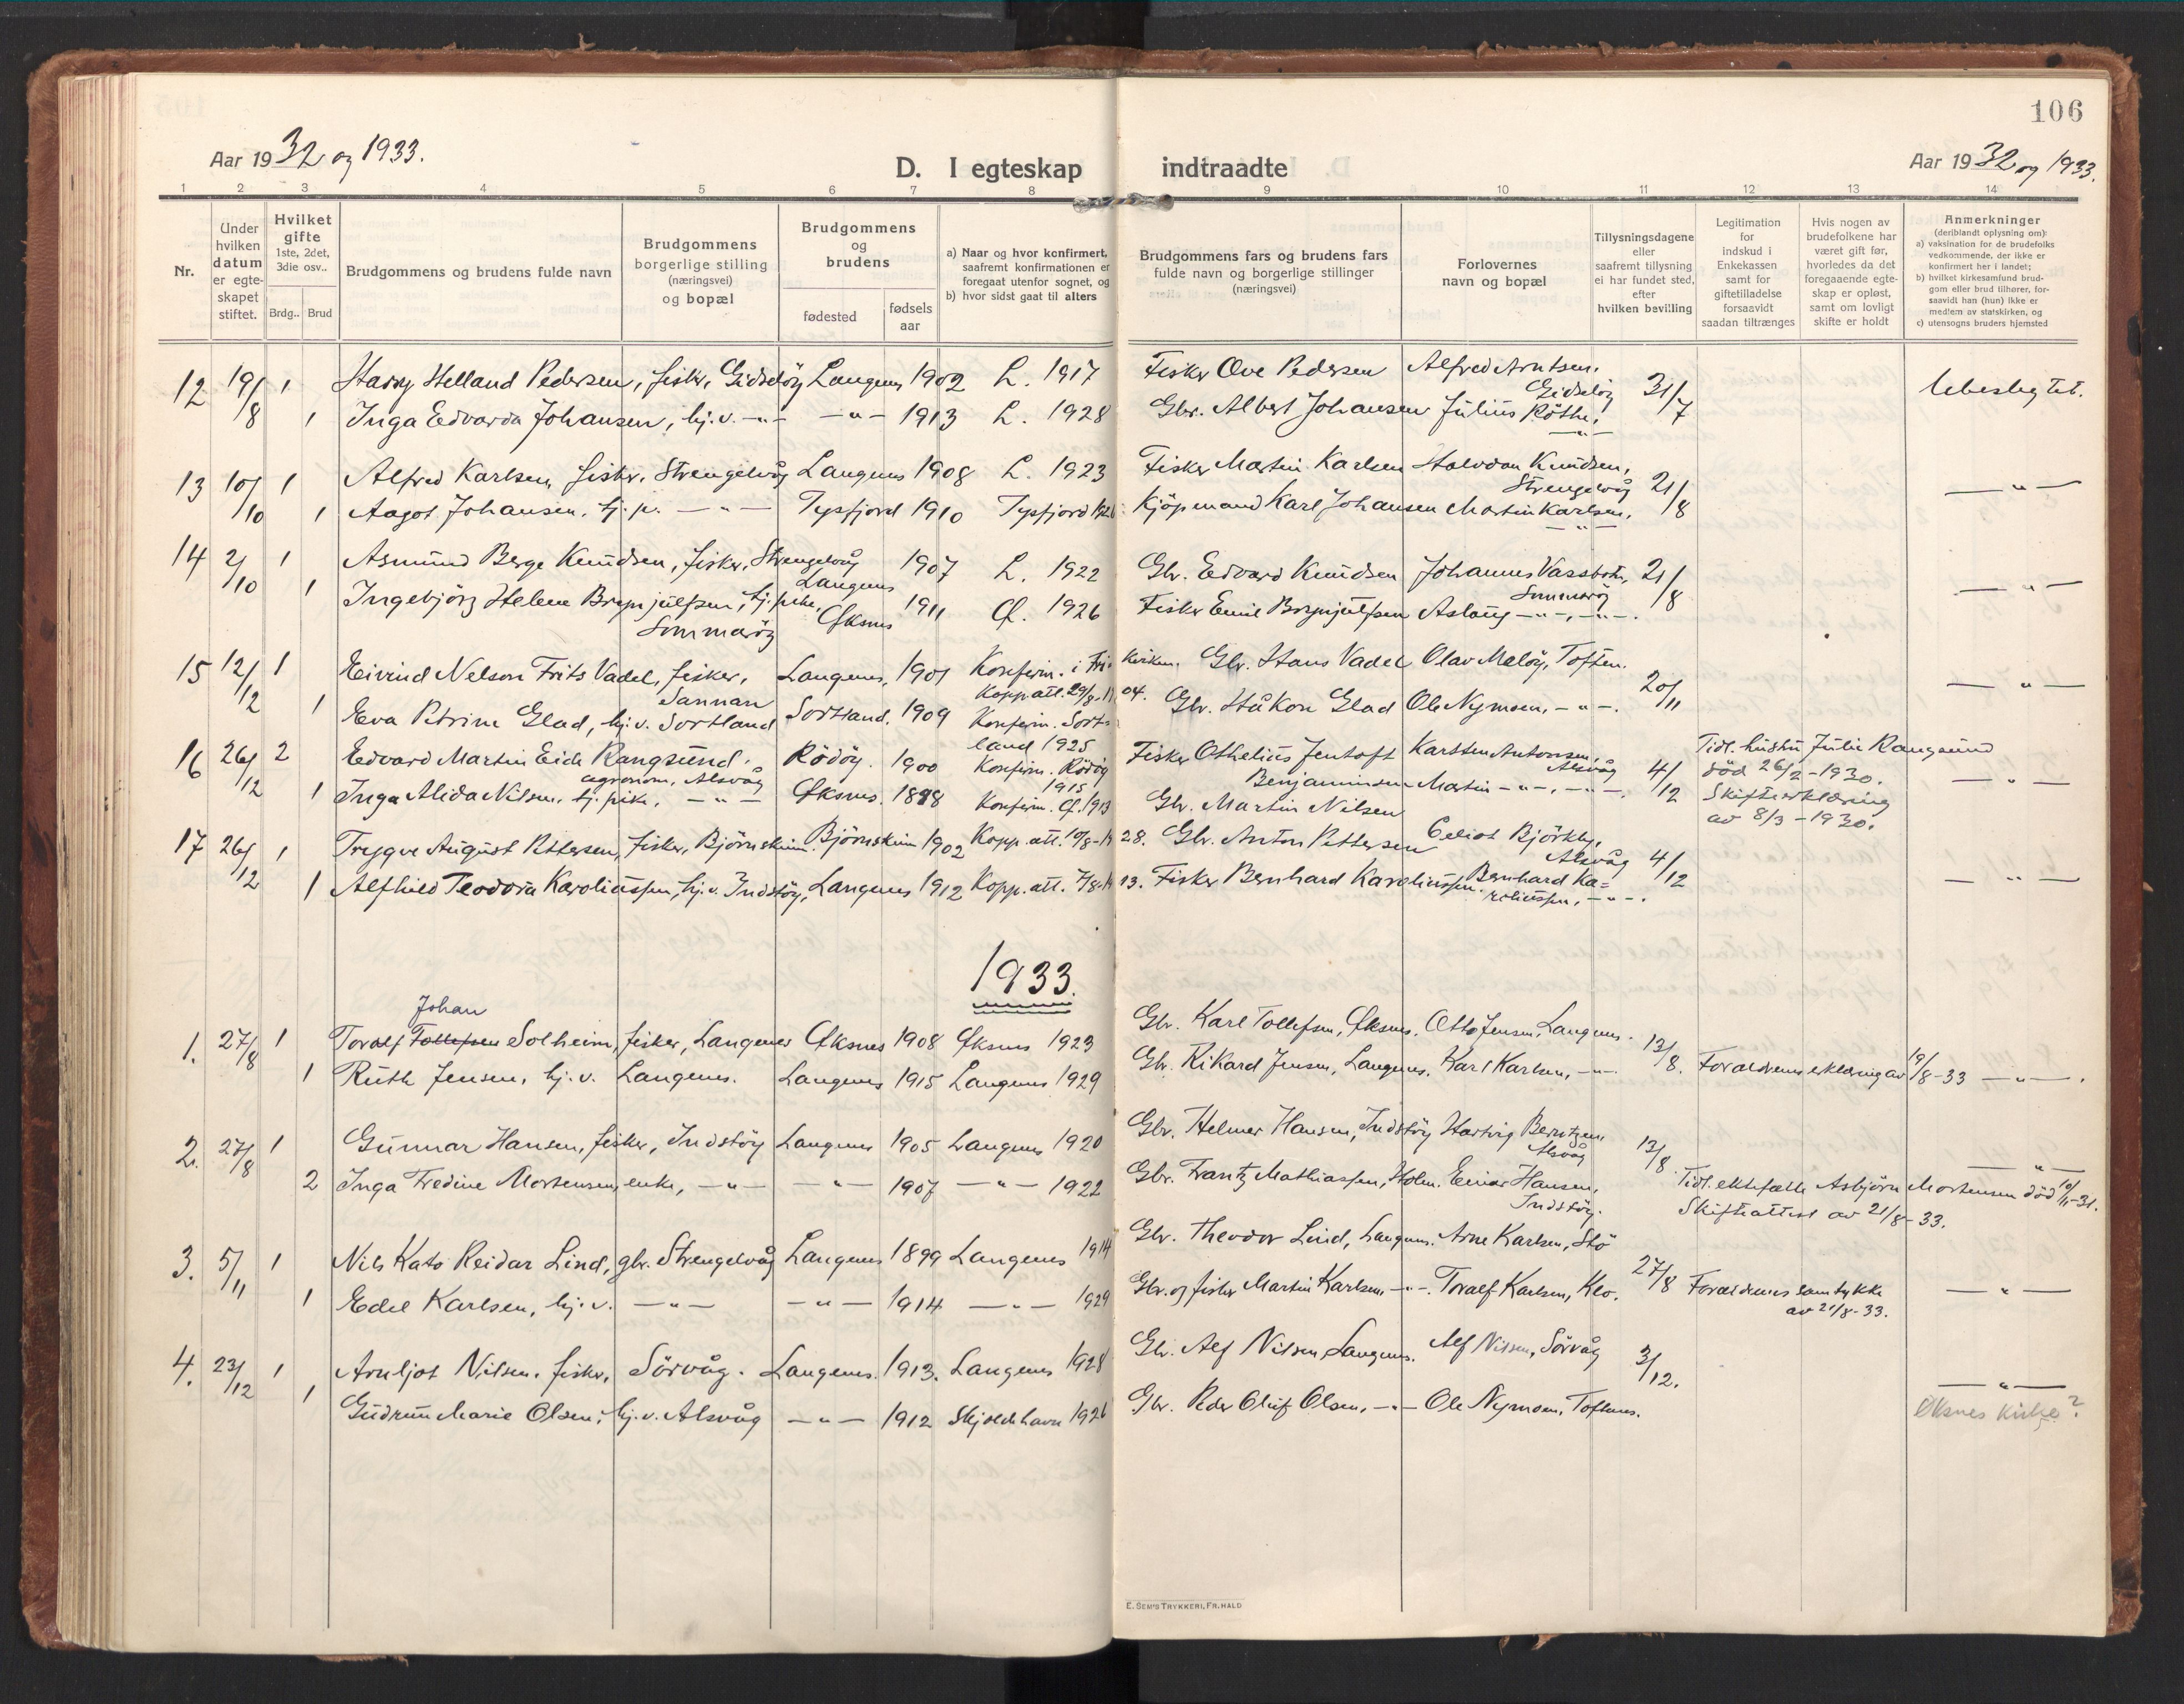 106
Aar 1932 og 1933.
D. I egteskap indtraadte
Aar 1932 og 1933.
1 2 3 4 5 6 7 8 9 10 11 12 13 14
Nr.
Under hvilken datum er egteskapet stiftet.
Hvilket gifte 1ste, 2det, 3die osv..
Brdg.. Brud
Brudgommens og brudens fulde navn
Brudgommens borgerlige stilling (næringsvei) og bopæl
Brudgommens og brudens
fødested
fødselsaar
a) Naar og hvor konfirmert, saafremt konfirmationen er foregaat utenfor sognet, og
b) hvor sidst gaat til alters
Brudgommens fars og brudens fars fulde navn og borgerlige stillinger (næringsvei)
Forlovernes navn og bopæl
Tillysningsdagene eller saafremt tillysning ei har fundet sted, efter hvilken bevilling
Legitimation for indskud i Enkekassen samt for giftetilladelse forsaavidt saadan tiltrænges
Hvis nogen av brudefolkene har været gift før, hvorledes da det foregaaende egteskap er opløst, samt om lovligt skifte er holdt
Anmerkninger (deriblandt oplysning om):
a) vaksination for de brudefolks vedkommende, der ikke er konfirmert her i landet;
b) hvilket kirkesamfund brudgom eller brud tilhører, forsaavidt han (hun) ikke er medlem av statskirken, og
c) utensogns bruders hjemsted
12 19/8 1 Harry Helland Pedersen, fisker, Gidsløy Langenes 1902 L. 1917 Fisker Ove Pedersen Alfred Arntsen, Gidsløy 31/7 Ubeslegtet.
1 Inga Edvarda Johansen, hj.v. -"- -"- 1913 L. 1928 Gbr. Albert Johansen Julius Röthe, -"-
13 10/10 1 Alfred Karlsen, fisker, Strengelvåg Langenes 1908 L. 1923 Fisker Martin Karlsen Halvdan Knudsen, Strengelvåg 21/8 -"-
1 Aagot Johansen, tj.p. -"- Tysfjord 1910 Tysfjord Kjöpmand Karl Johansen Martin Karlsen, -"-
14 2/10 1 Asmund Berge Knudsen, fisker, Strengelvåg Langenes 1907 L. 1922 Gbr. Edvard Knudsen Johannes Vassbotn, Sommarøy 21/8 -"-
1 Ingebjörg Helene Brynjulfsen, tj.pike, Sommarøy Öksnes 1911 Ö. 1926 Fisker Emil Brynjulfsen Aslaug -"-, -"-.
15 12/12 1 Eivind Nelson Frits Vadel, fisker, Sannan Langenes, 1901 Konfirm. i Frikirken. Kopp.att. 29/8-1904. Gbr. Hans Vadel Olav Meløy, Toften. 20/11 -"-
1 Eva Petrine Glad, hj.v. Sortland Sortland. 1909 Konfirm. Sortland 1925 Gbr. Håkon Glad Ole Nymoen, -"-.
16 26/12 2 Edvard Martin Eide Rangsund, agronom, Alsvåg Rödöy. 1900 Konfirm. Rödöy 1915 Fisker Othelius Jentoft Benjaminsen Karsten Antonsen, Alsvåg 4/12 Tidl. hustru Julie Rangsund död 26/2-1930. Skifteerklæring av 8/3-1930. -"-
1 Inga Alida Nilsen, tj.pike, -"- Öksnes. 1898 Konfirm. Ö. 1913 Gbr. Martin Nilsen Matin -"-, -"-.
17 26/12 1 Trygve August Pettersen, fisker, Björnskinn. Björnskinn 1902 Kopp.att. 10/8-1928. Gbr. Anton Pettersen Björkly, Alsvåg 4/12
1 Alfhild Teodora Karoliussen, hj.v. Indstöy, Langenes 1912 Kopp.att. 7/8-1913. Fisker Bernhard Karoliussen. Bernhard Karoliussen, -"-. -"-
1933.
1. 27/8 1 Toralf Johan Tollefsen Solheim, fisker, Langenes Öksnes 1908 Öksnes 1923 Gbr. Karl Tollefsen, Öksnes. Otto Jensen, Langenes. 13/8.
1 Ruth Jensen, hj.v. Langenes. Langenes 1915 Langenes 1929 Gbr. Rikard Jensen, Langenes. Karl Karlsen, -"- Forældrenes erklæring av 19/8-33 -"-.
2. 27/8 1 Gunnar Hansen, fisker, Indstöy Langenes 1905 Langenes 1920 Gbr. Helmer Hansen, Indstöy Hartvig Berntzen, Alsvåg 13/8 -"-
2 Inga Fredine Mortensen, enke, -"- -"- 1907 -"- 1922 Gbr. Frantz Mathiassen, Holm. Einar Hansen, Indstöy. Tidl. ektefælle Asbjörn Mortensen död 10/11-31. Skifteattest av 21/8-33.
3. 5/11 1 Nils Kato Reidar Lind, gbr. Strengelvåg Langenes 1899 Langenes 1914 Gbr. Theodor Lind, Langenes. Arne Karlsen, Stö 27/8
1 Edel Karlsen, hj.v. -"- -"- 1914 -"- 1929 Gbr. og fisker Martin Karlsen, -"-. Toralf Karlsen, Klo. Forældrenes samtykke av 21/8-33. -"-
4. 23/12 1 Arnljot Nilsen, fisker, Sörvåg. Langenes. 1913. Langenes 1928 Gbr. Alf Nilsen, Langenes. Alf Nilsen, Sörvåg 3/12. -"-
1 Gudrun Marie Olsen, hj.v. Alsvåg -"- 1912 Skjoldehavn 1926 Gbr. Peder Oluf Olsen, -"- Ole Nymoen, Toftenes. Øksnes kirke?
E. SEM'S TRYKKERI, FR.HALD